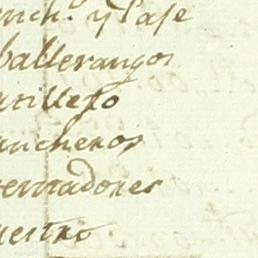 anch.º y Pase
ballerangos
arillejo
ancheros
erviadores
uestro